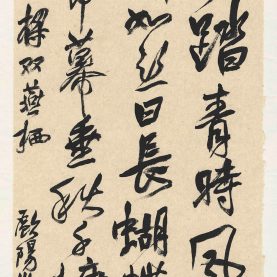 踏青時风
如眉日長蝴蝶
幕垂秋千慵
樑双燕栖 歐陽